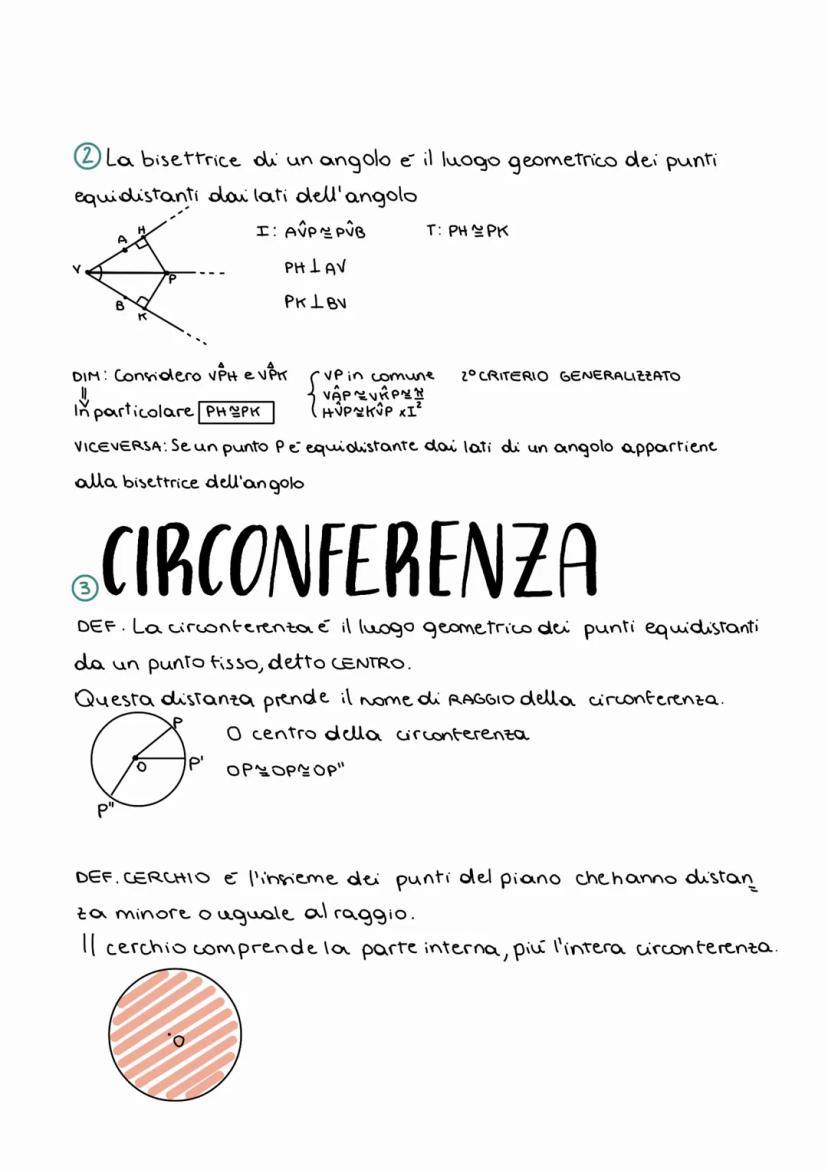 ② La bisettrice di un angolo é il luogo geometrico dei punti
equidistanti dai lati dell'angolo
I: AV̂P≅PV̂B T: PH≅PK
PH⊥AV
PK⊥BV
V A H P B K
DIM: Considero VP̂H e VP̂K { VP in comune 2° CRITERIO GENERALIZZATO
⇓ VÂP≅VK̂P≅π/2
In particolare PH≅PK HV̂P≅KV̂P x I
VICEVERSA: Se un punto P é equidistante dai lati di un angolo appartiene
alla bisettrice dell'angolo
③ CIRCONFERENZA
DEF. La circonferenza é il luogo geometrico dei punti equidistanti
da un punto fisso, detto CENTRO.
Questa distanza prende il nome di RAGGIO della circonferenza.
P O P' P"
O centro della circonferenza
OP≅OP≅OP"
DEF. CERCHIO é l'insieme dei punti del piano che hanno distan=
za minore o uguale al raggio.
Il cerchio comprende la parte interna, piú l'intera circonferenza.
O